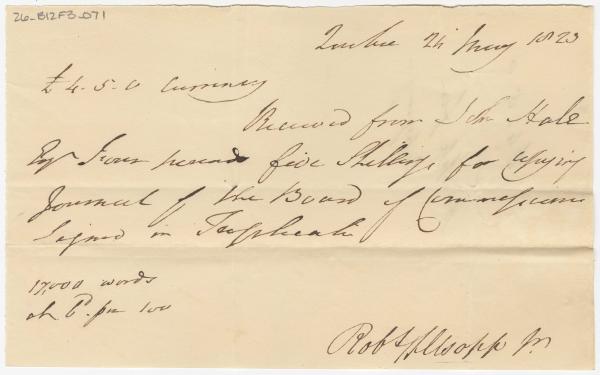 26-B12F3-071
Quebec 24 May 1823
£ 4. 5. 0 Currency
Received from John Hale
Esqr Four pounds five Shillings for copying
Journal of the Board of Commissioners
Signed in Triplicate
17,000 words
at 6d. per 100
Robt Allsopp Jr.